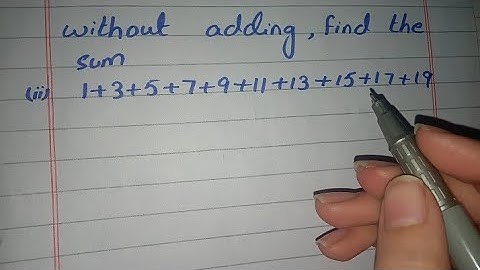 without adding, find the
sum
(ii) 1+3+5+7+9+11+13+15+17+19